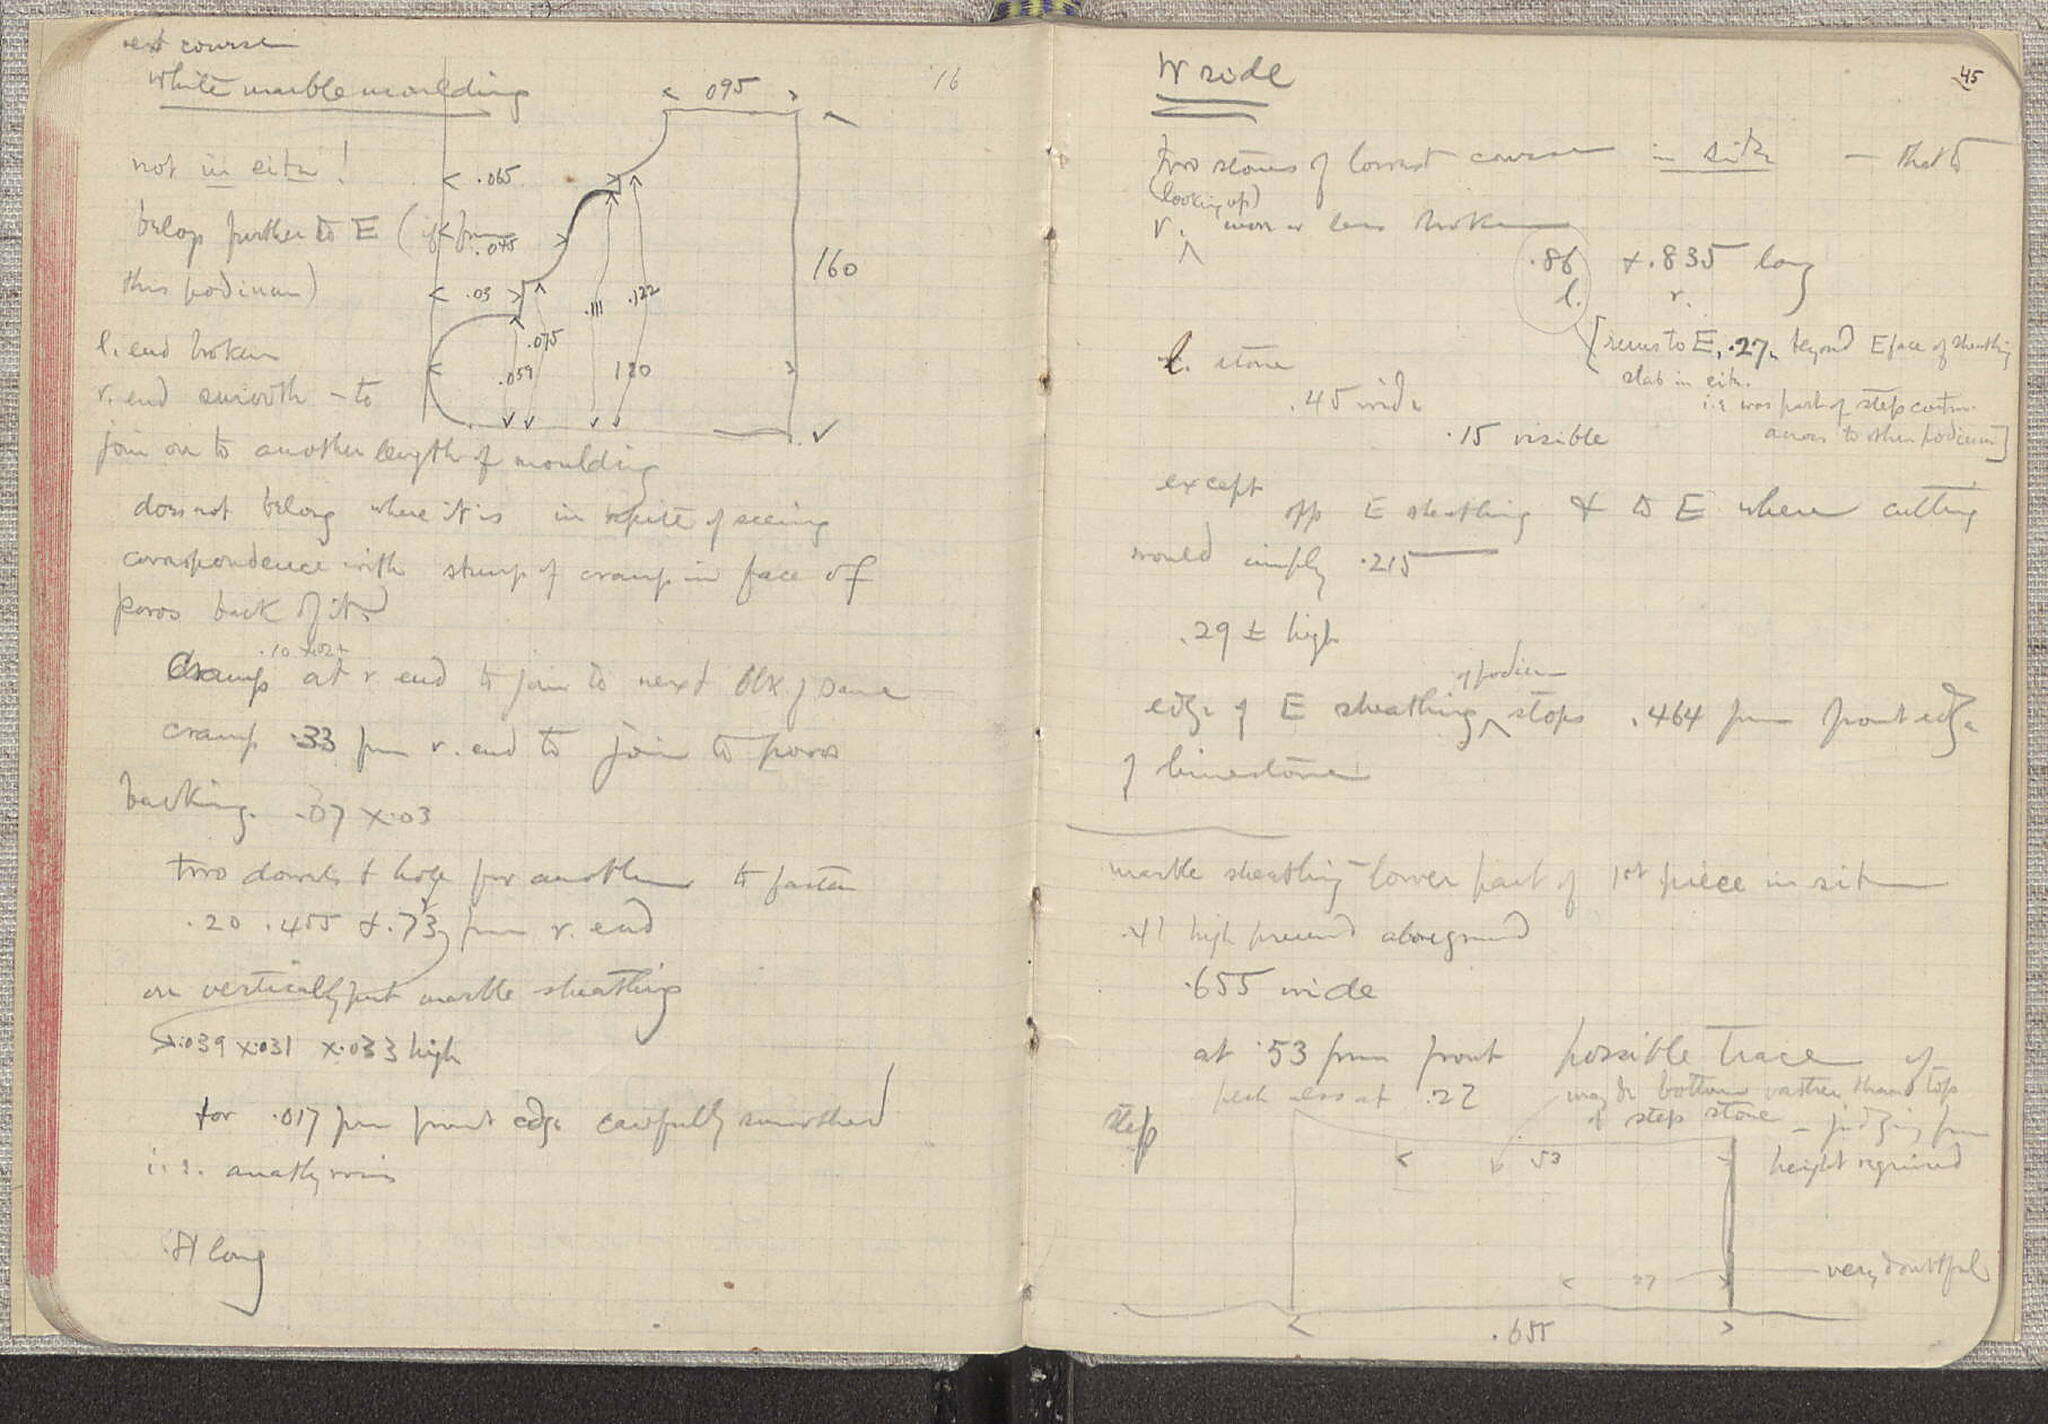 next course
white marble moulding
16
.095
not in situ!
.065
belop further to E (if from
.045
160
this podium)
.03
.111
.122
.075
l. end broken
.059
120
r. end smooth – to
join on to another length of moulding
does not belong where it is in spite of seeming
correspondence with stump of cramp in face of
poros back of it
.10 x .02+
Cramp at r. end to join to next blk of same
cramp .33 from r. end to join to poros
backing. .07 x .03
two dowels & hole for another to fasten
.20 .455 & .73 from r. end
on vertically put marble sheathing
.039 x .031 x .033 high
for .017 from front edge carefully smoothed
i.e. anathyrosis
.81 long
W side
45
two stones of lowest course in situ – that to
(looking up)
r. more or less broken
.86 + .835 long
l. r.
[runs to E, .27, beyond E face of sheathing
slab in situ.
i.e. was part of step contin.
across to other podium]
l. stone
.45 wide
.15 visible
except opp E sheathing & to E where cutting
would imply .215
.29 ± high
of podium
edge of E sheathing stops .464 from front edge
of limestone
marble sheathing – lower part of 1st piece in situ
.41 high preserved above ground
.655 wide
at .53 from front possible trace of
step
at .27
may be bottom rather than top
of step stone – judging from
height required
.53
.27
very doubtful
.655